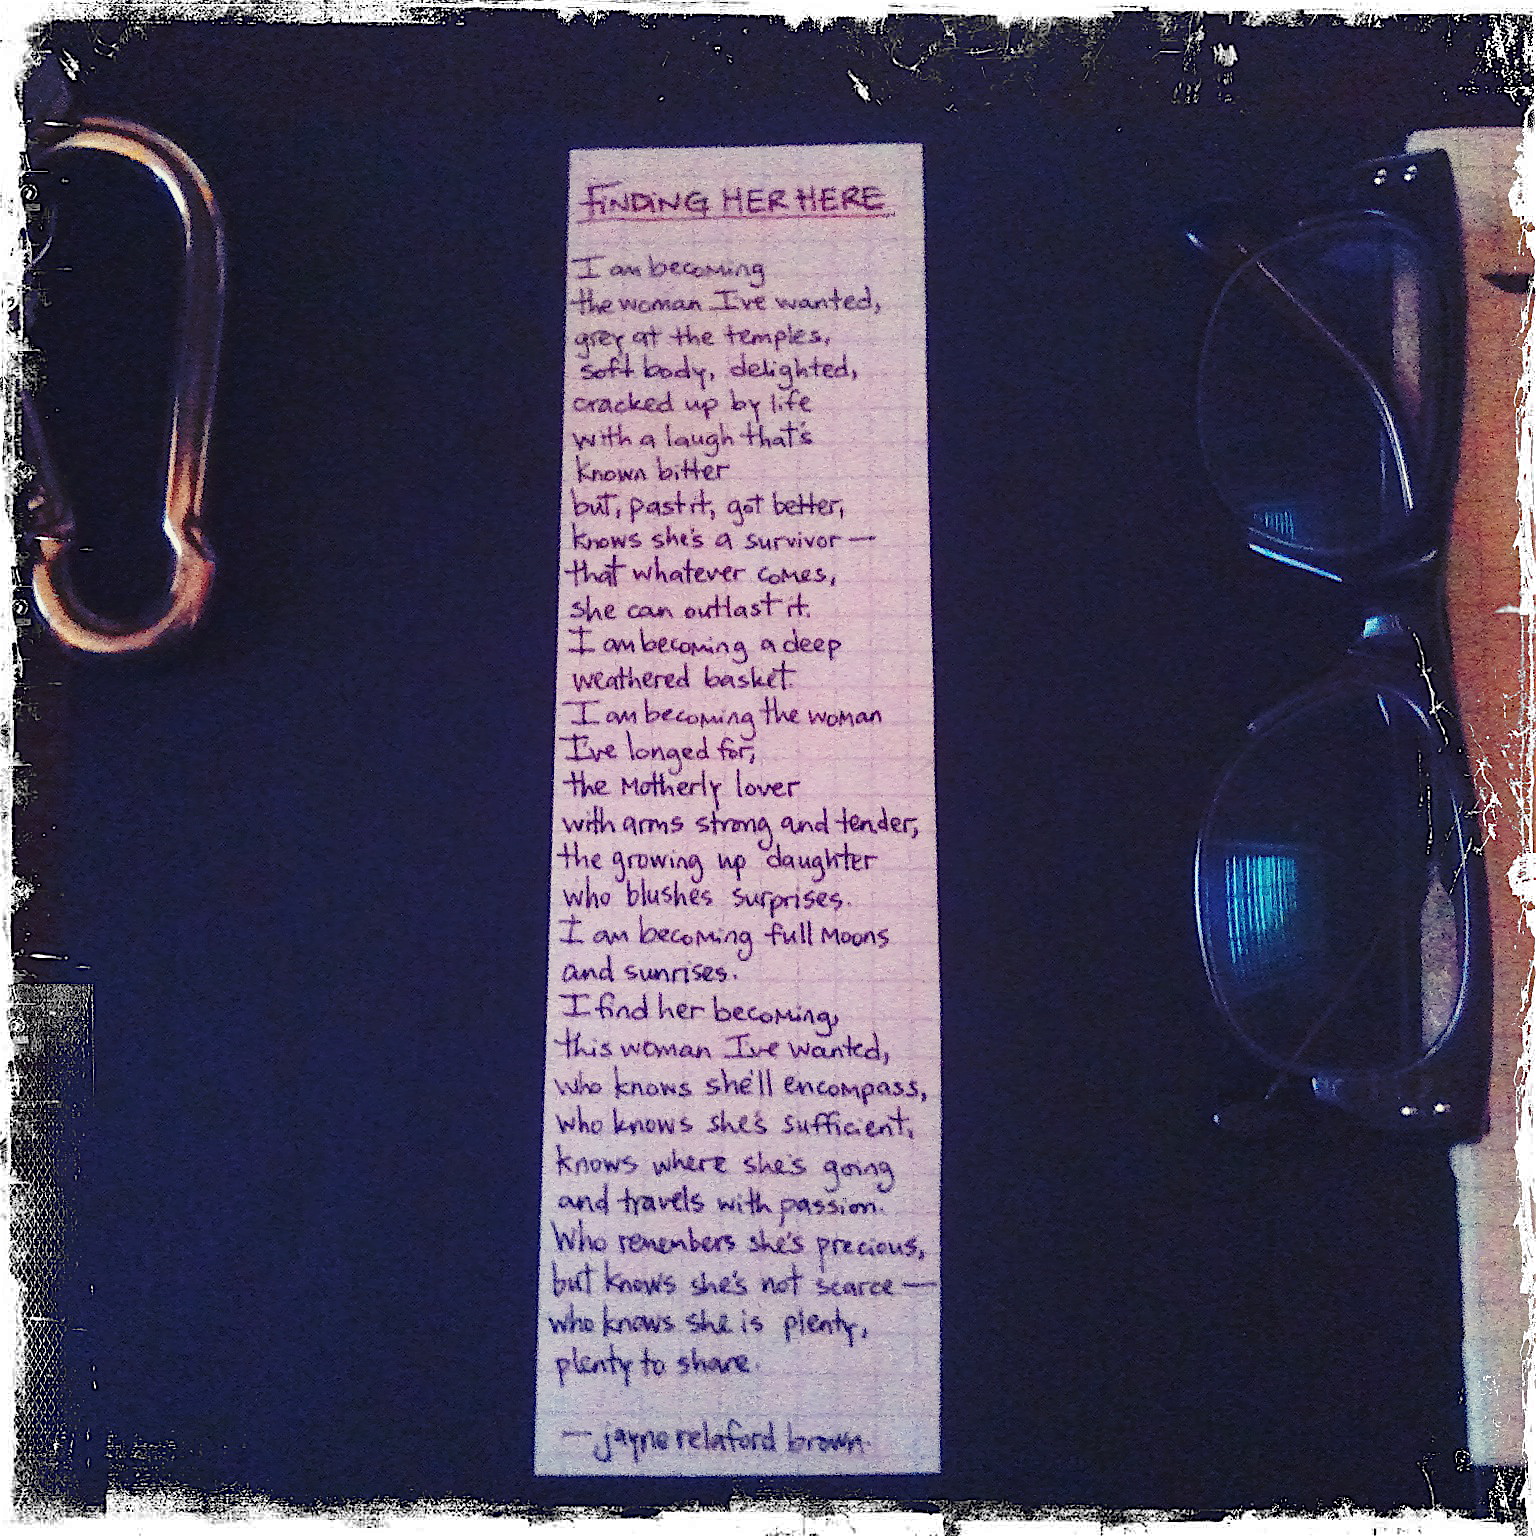 FINDING HER HERE
I am becoming
the woman I've wanted,
grey at the temples,
soft body, delighted,
cracked up by life
with a laugh that's
known bitter
but, past it, got better,
knows she's a survivor —
that whatever comes,
she can outlast it.
I am becoming a deep
weathered basket.
I am becoming the woman
I've longed for,
the motherly lover
with arms strong and tender,
the growing up daughter
who blushes surprises.
I am becoming full moons
and sunrises.
I find her becoming,
this woman I've wanted,
who knows she'll encompass,
who knows she's sufficient,
knows where she's going
and travels with passion.
Who remembers she's precious,
but knows she's not scarce —
who knows she is plenty,
plenty to share.
— jayne relaford brown